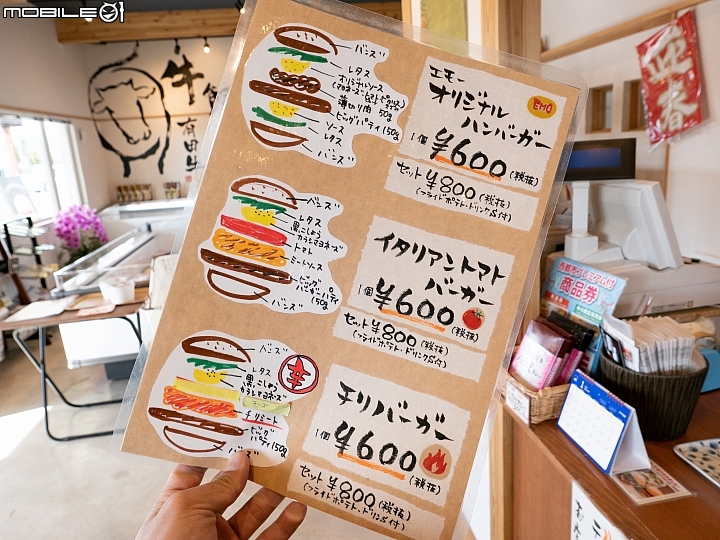 MOBILE01
牛
有田牛
迎春
バンズ
レタス
オリジナルソース
薄切り肉 50g
ビッグパティ150g
ソース
レタス
バンズ
エモー
オリジナル
ハンバーガー
EMO
1個 ¥600(税抜)
セット¥800(税抜)
(フライドポテト・ドリンク付)
バンズ
レタス
黒こしょう
カラシマヨネーズ
トマト
ミートソース
ビッグ
バーガーパティ
150g
バンズ
イタリアントマト
バーガー
1個 ¥600(税抜)
セット¥800(税抜)
(フライドポテト・ドリンク付)
バンズ
レタス
黒こしょう
カラシマヨネーズ
チーズ
チリミート
ビッグ
パティ150g
バンズ
辛
チリバーガー
1個 ¥600(税抜)
セット¥800(税抜)
(フライドポテト・ドリンク付)
西都市プレミアム付
商品券